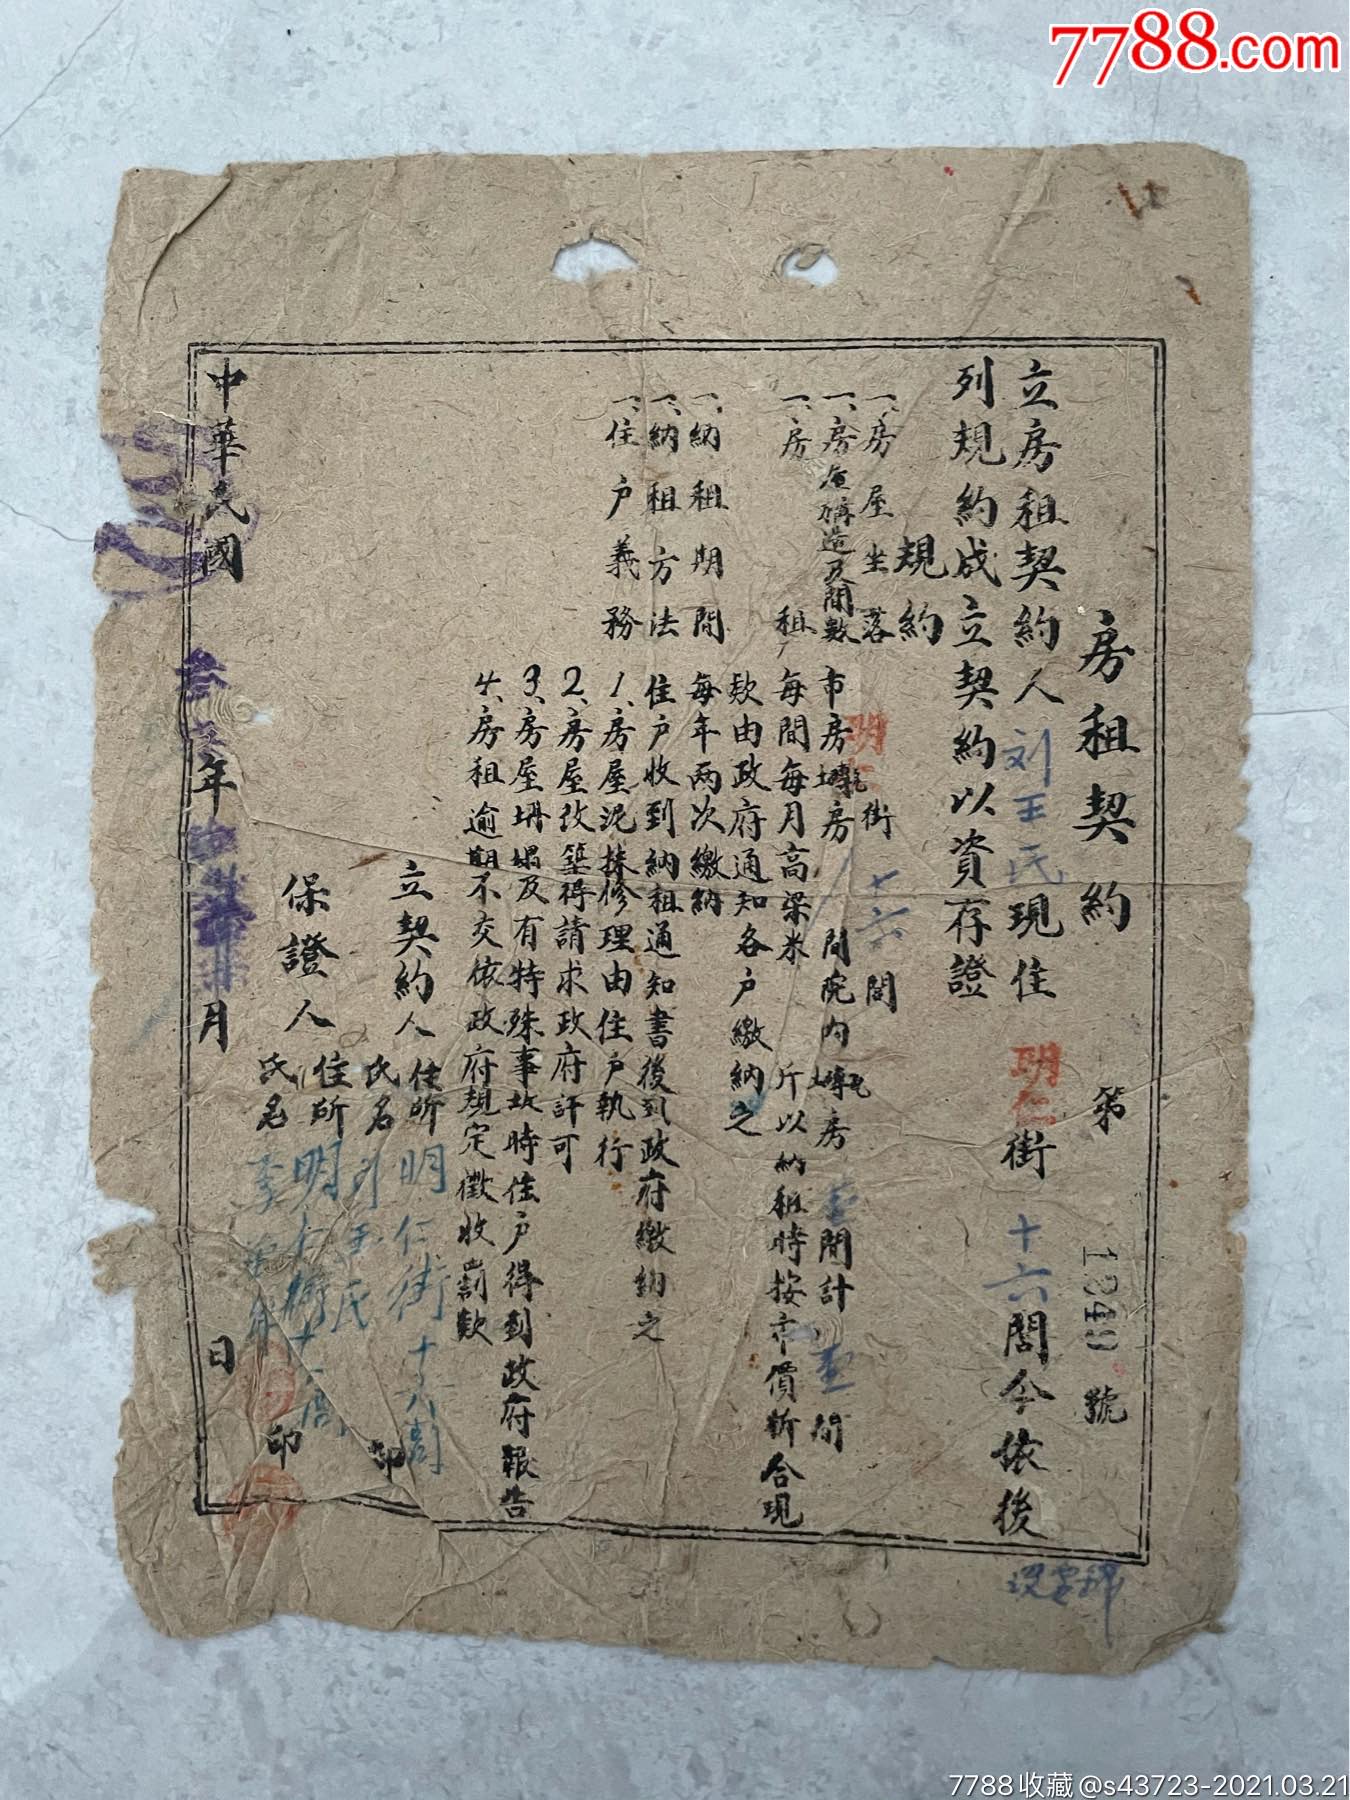 7788.com
房租契約
第 1349 號
立房租契約人 刘王氏 現住 明仁 街 十六 閭今依後
列規約成立契約以資存證
規約
一、房屋坐落 明仁 街 十六 閭
一、房屋構造及間數 市房磚瓦房 間院内磚瓦房 壹 間計 壹 間
一、房租 每間每月高梁米 斤以納租時按市價折合現
欵由政府通知各户繳納之
一、納租期間 每年两次繳納
一、納租方法 住户收到納租通知書後到政府繳納之
一、住户義務 1、房屋泥抹修理由住户執行
2、房屋改築得請求政府許可
3、房屋坍塌及有特殊事故時住户得到政府報告
4、房租逾期不交依政府規定徵收罰欵
立契約人 住所 明仁街十六閭
氏名 刘王氏 印
保證人 住所 明仁街十六閭
氏名 李 印
中華民國 叁 年 月 日
7788收藏@s43723-2021.03.21